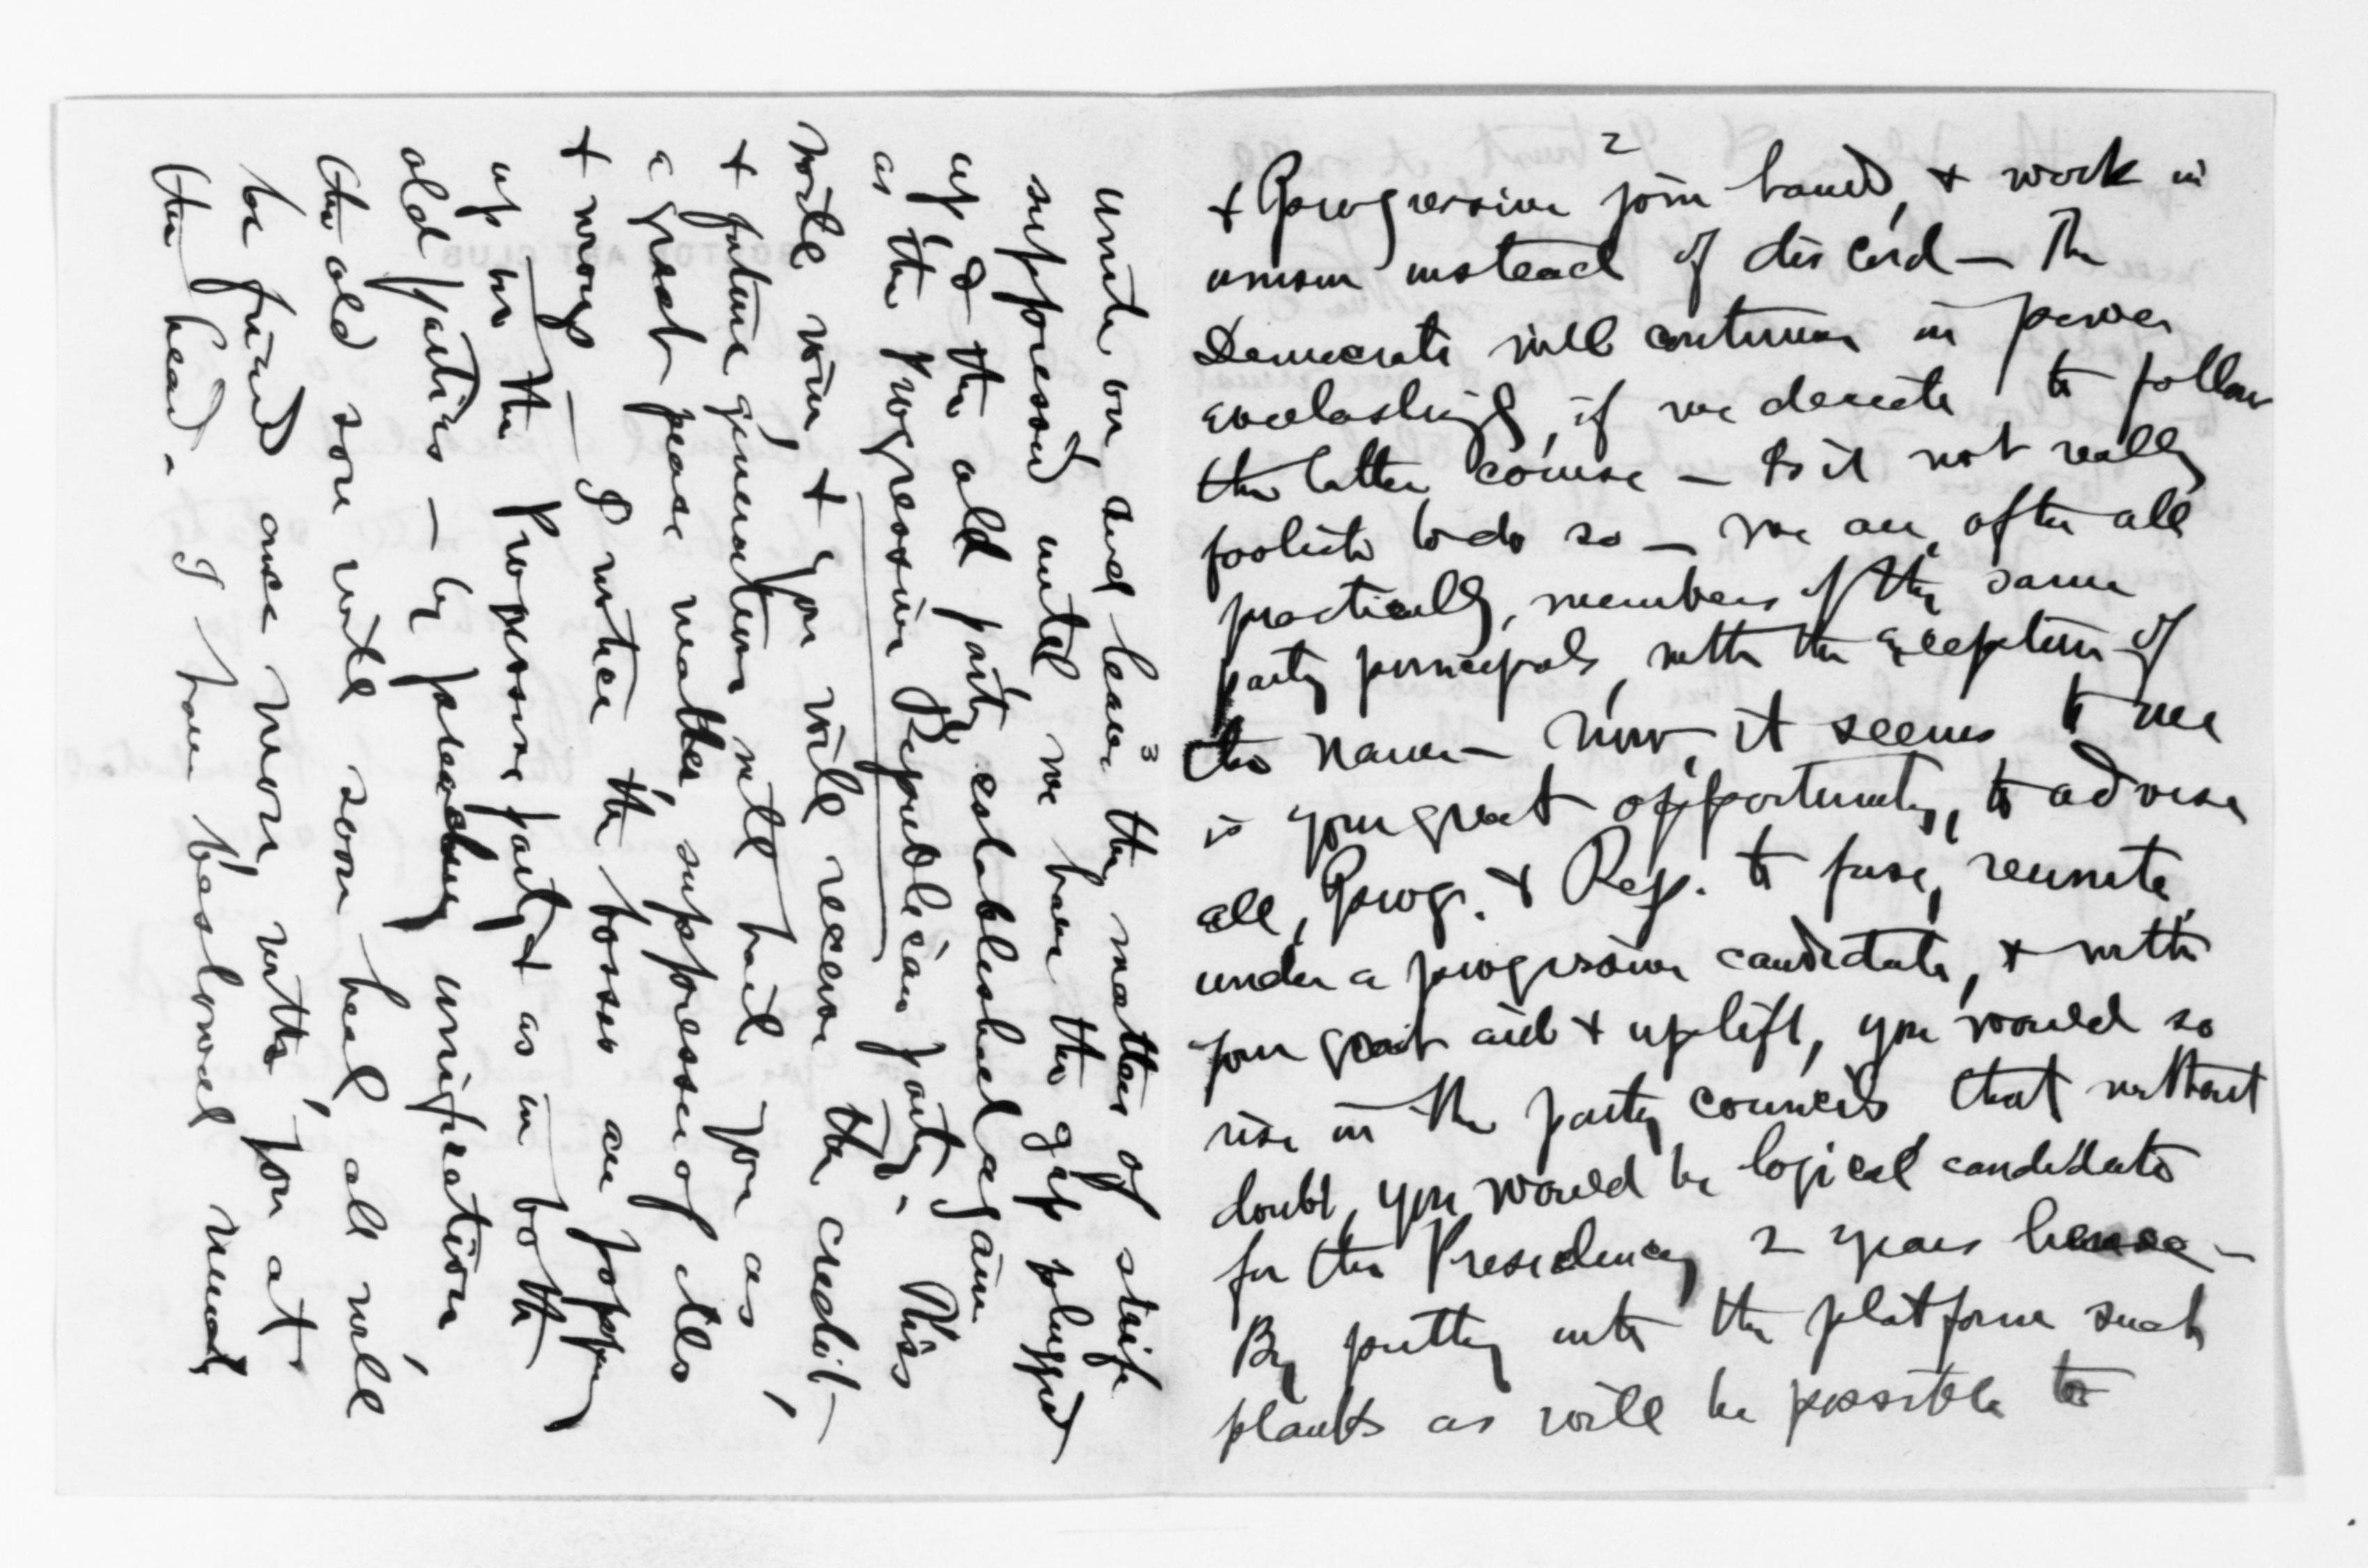 2
& Progressive join hands, & work in
unison instead of discord — The
Democrats will continue in power
everlastingly, if we decide to follow
the latter course — Is it not really
foolish to do so — we are, after all
practically, members of the same
party principals, with the exception of
the name — Now, it seems to me
is your great opportunity, to advise
all, Prog. & Rep. to fuse, reunite,
under a progressive candidate, & with
your great aid & uplift, you would so
rise in the party councils that without
doubt, you would be logical candidate
for the Presidency 2 years hence —
By putting into the platform such
planks as will be possible to
3
unite on and leave the matter of strife
suppressed until we have the gap plugged
up & the old party established again
as "the Progressive Republican party". This
will win, & you will receive the credit —
& future generations will hail you as,
a great peace maker, suppresser of ills
& wrongs — I notice the bosses are popping
up in the Progressive party & as in both
old parties — by preaching unification
the old sore will soon heal all will
be fused once more, with you at
the head — I have bestowed much